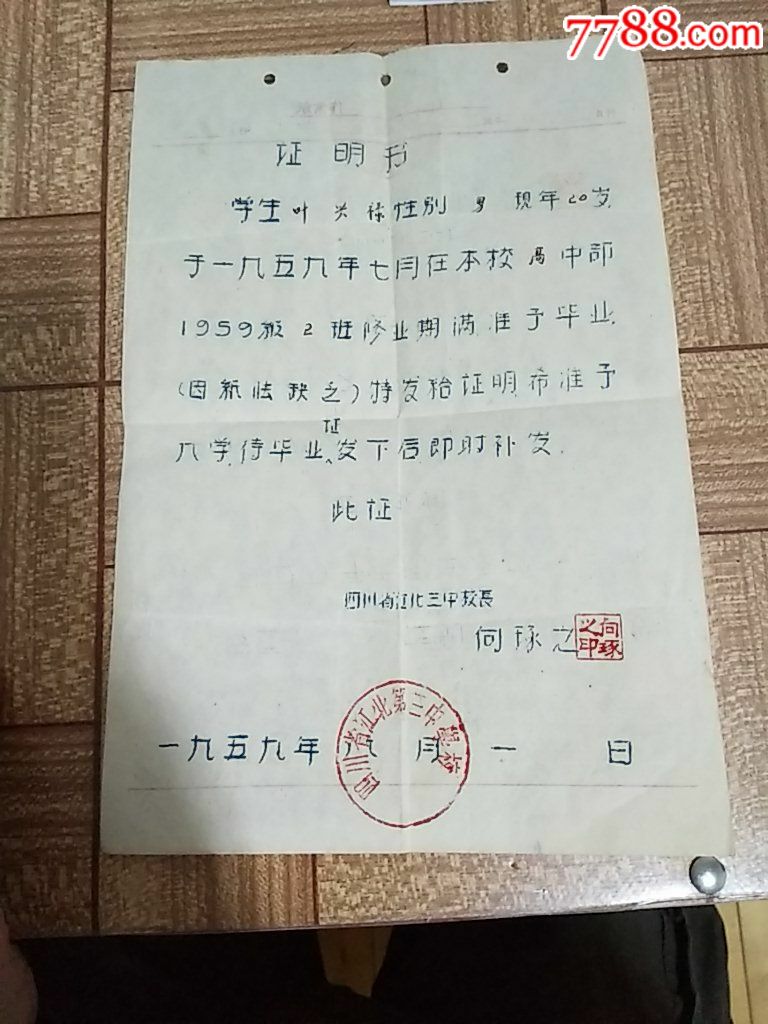 7788.com
证明书
学生叶兴禄性别 男 现年20岁
于一九五九年七月在本校高中部
1959级2班修业期满准予毕业
(因纸张缺乏)特发给证明希准予
入学,待毕业证发下后即时补发.
此证
四川省江北三中校长
何琢之
何琢之印
四川省江北第三中学校
一九五九年八月一日